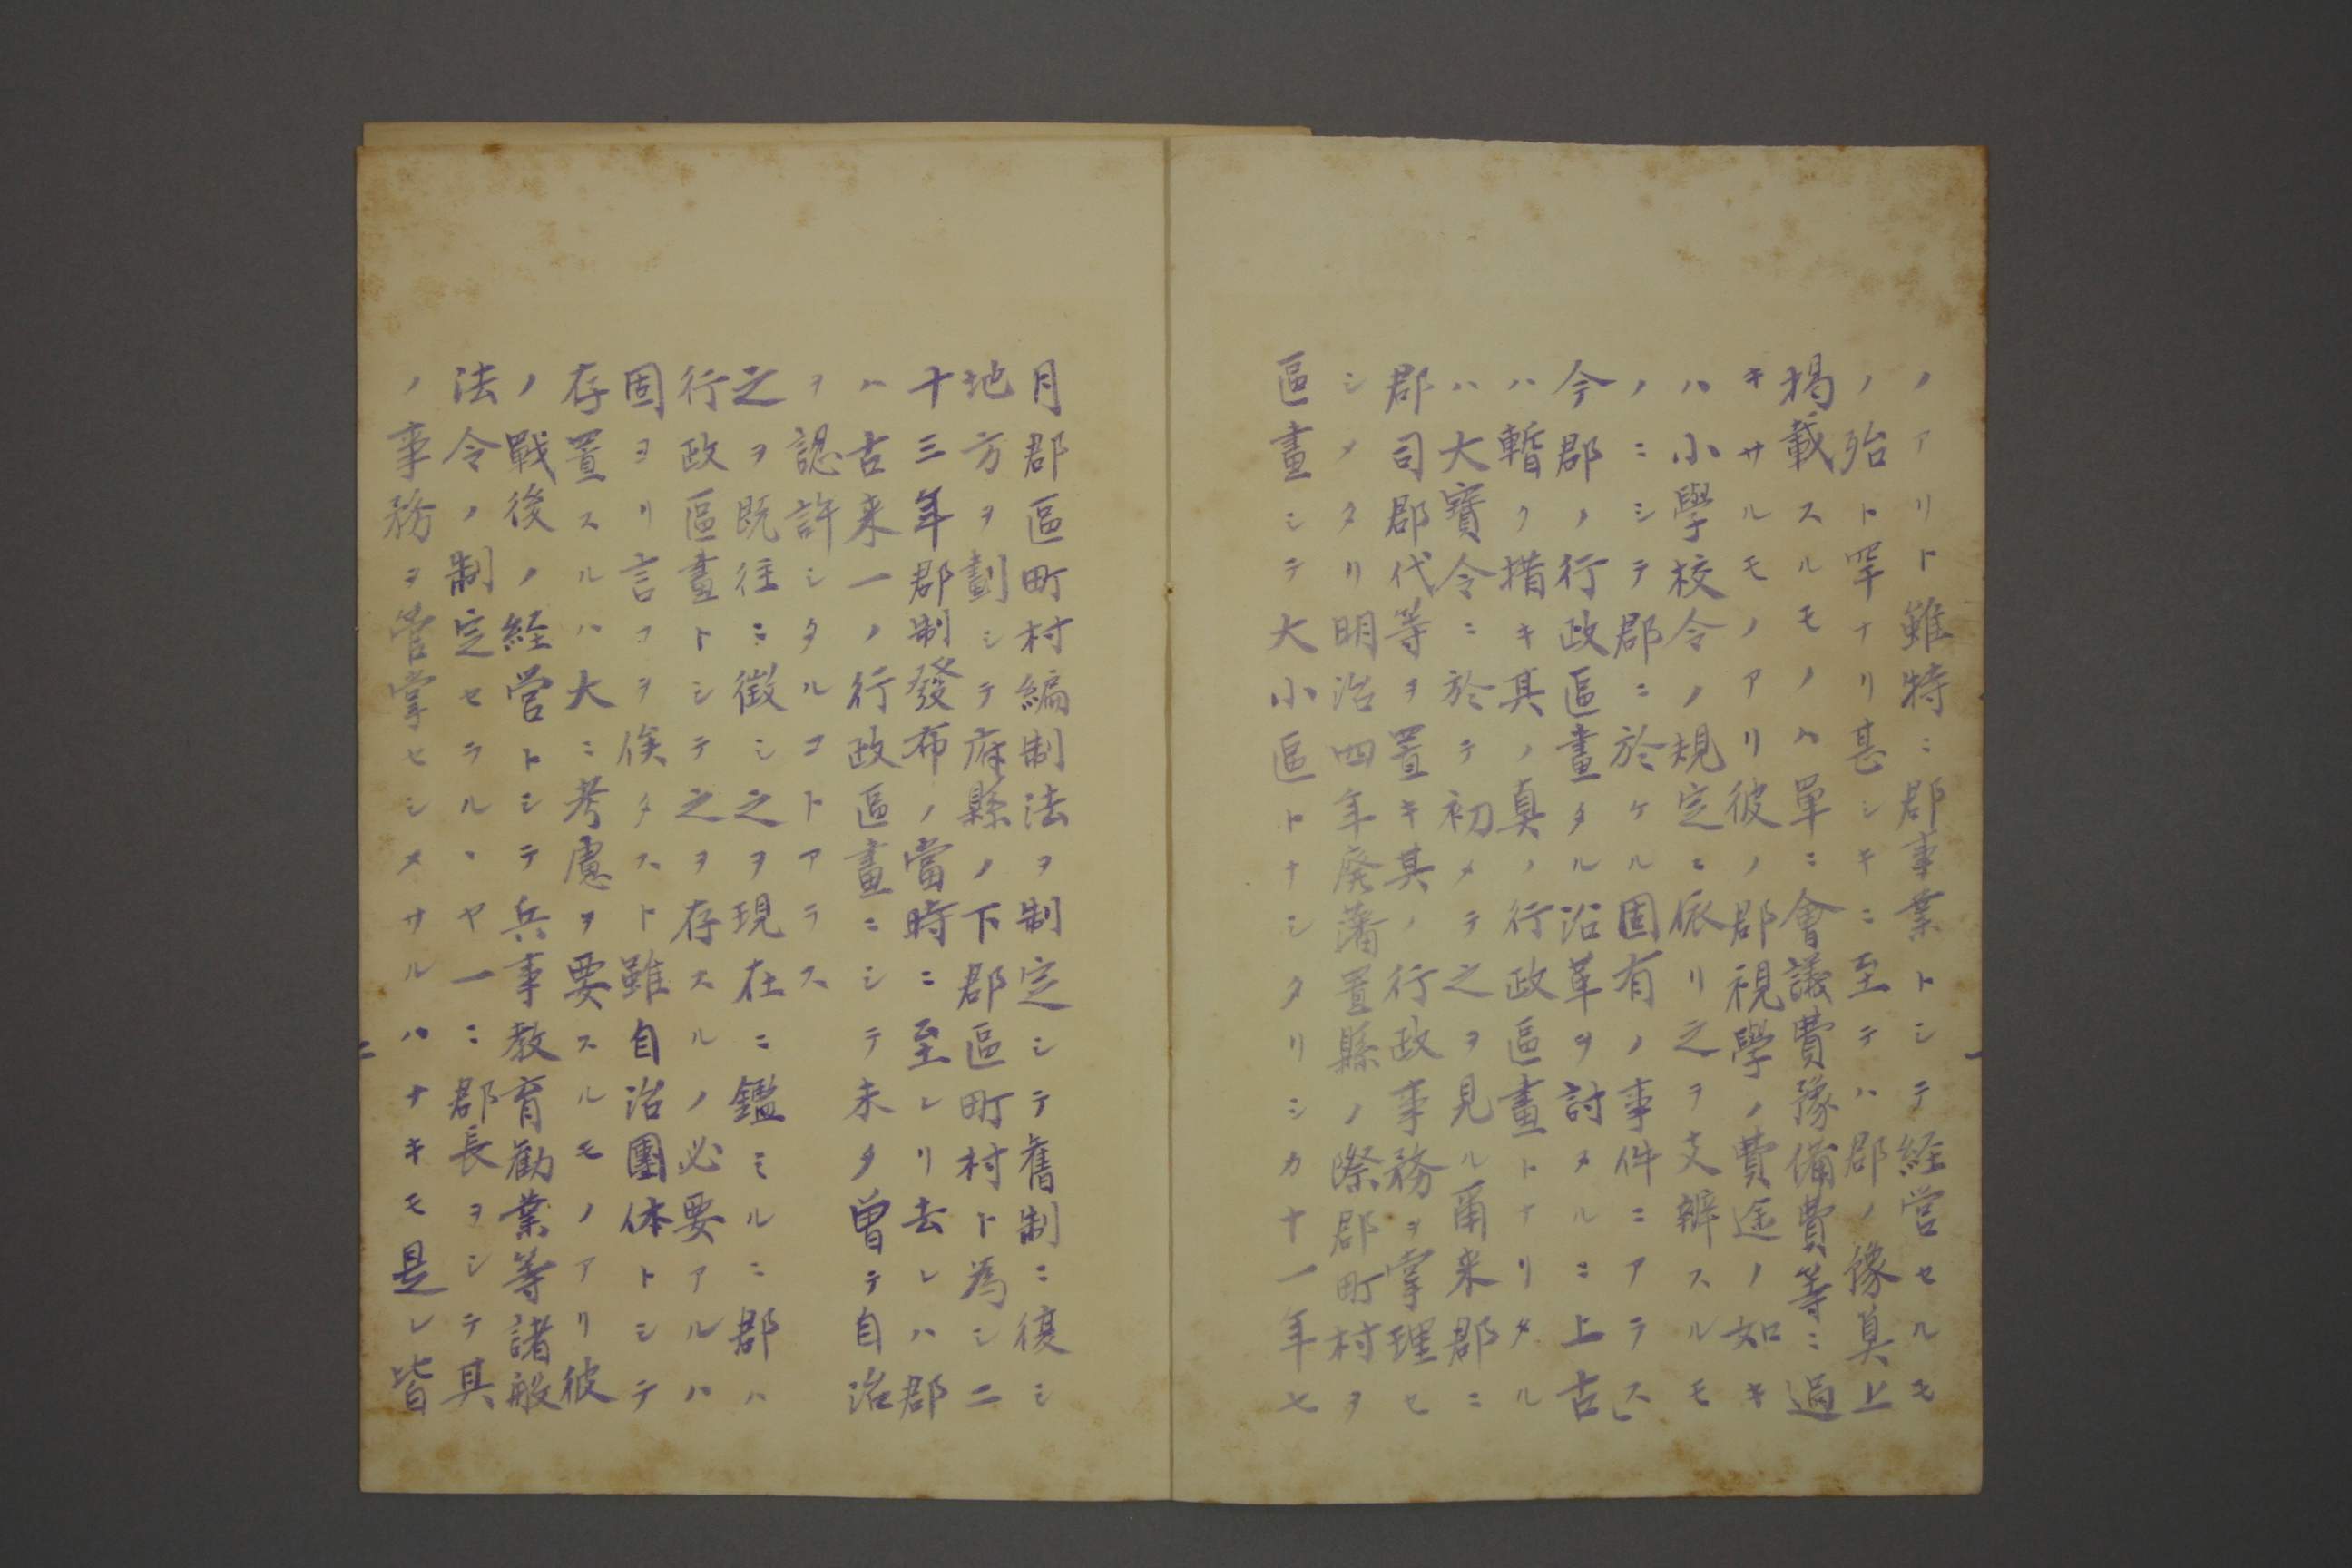 ノアリト雖特ニ郡事業トシテ経営セルモ
ノ殆ト罕ナリ甚シキニ至テハ郡ノ豫算上
掲載スルモノハ單ニ會議費豫備費等ニ過
キサルモノアリ彼ノ郡視學ノ費途ノ如キ
ハ小學校令ノ規定ニ依リ之ヲ支辨スルモ
ノニシテ郡ニ於ケル固有ノ事件ニアラス
今郡ノ行政區畫タル沿革ヲ討ヌルニ上古
ハ暫ク措キ其ノ真ノ行政區畫トナリタル
ハ大寶令ニ於テ初メテ之ヲ見ル爾来郡ニ
郡司郡代等ヲ置キ其ノ行政事務ヲ掌理セ
シメタリ明治四年廃藩置縣ノ際郡町村ヲ
區畫シテ大小區トナシタリシカ十一年七
月郡區町村編制法ヲ制定シテ舊制ニ復シ
地方ヲ劃シテ府縣ノ下郡區町村ト為シ二
十三年郡制發布ノ當時ニ至レリ去レハ郡
ハ古来一ノ行政區畫ニシテ未タ曽テ自治
ヲ認許シタルコトアラス
之ヲ既往ニ徴シ之ヲ現在ニ鑑ミルニ郡ハ
行政區畫トシテ之ヲ存スルノ必要アルハ
固ヨリ言フヲ俟タスト雖自治團体トシテ
存置スルハ大ニ考慮ヲ要スルモノアリ彼
ノ戰後ノ経営トシテ兵事教育勸業等諸般
法令ノ制定セラルヽヤ一ニ郡長ヲシテ其
ノ事務ヲ管掌セシメサルハナキモ是レ皆